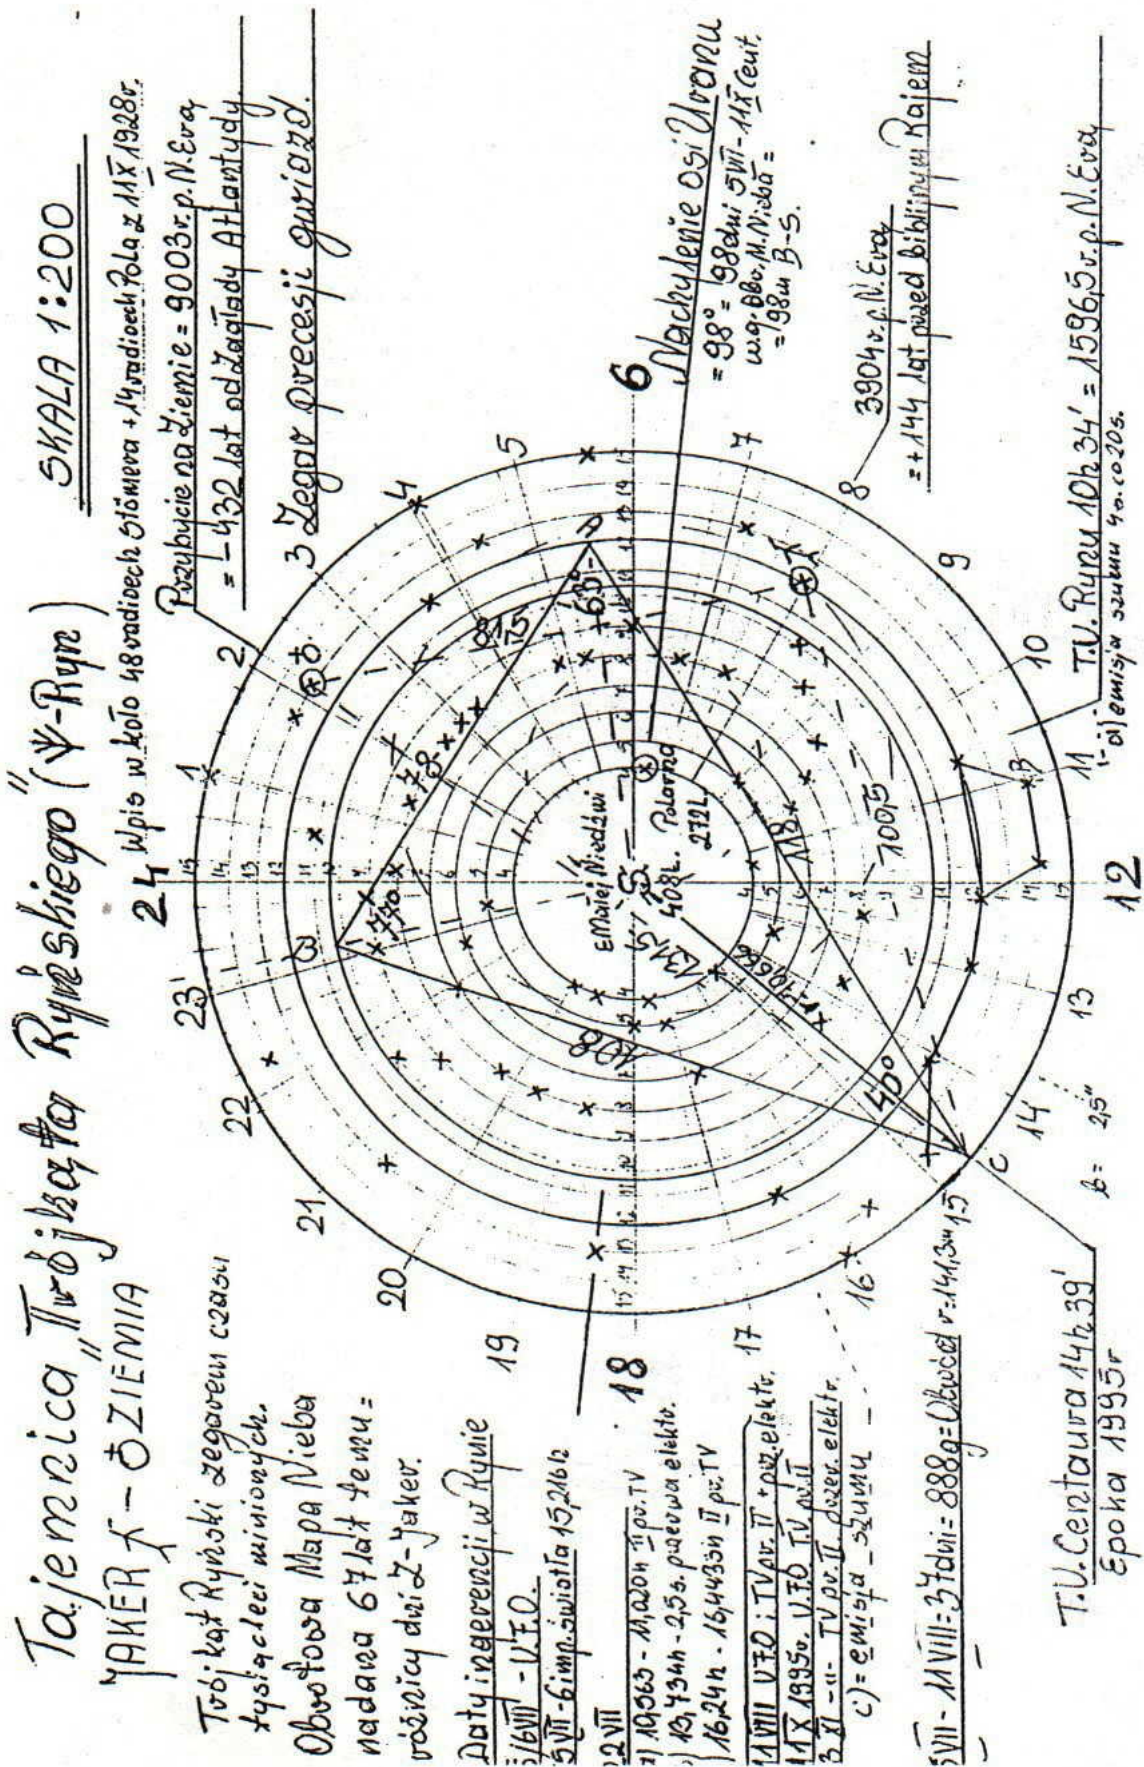 Tajemnica „Trójkąta Ryńskiego" (Ψ-Ryn)
SKALA 1:200
- ZIEMIA
24 Wpis w koło 48 radioech Störmera + 14 radioech Pola z 11X 1928r.
Trójkąt Ryński zegarem czasu
tysiącleci minionych.
Obrotowa Mapa Nieba
nadana 67 lat temu =
różnicy dni Z-Jaker.
Daty ingerencji w Rynie
16VII - U.F.O.
5VII - 6 imp. światła 15,216h
22VII
13,734h - 2,5s. przerwa elektr.
16,24h - 16,4433h II pr. TV
11 VIII UFO i TV pr. II + prz. elektr.
11 X 1995r. U.F.O TV pr. II
3 XI -"- TV pr. II przer. elektr.
c) = emisja szumu
VII - 11 VIII = 37dni = 888g = Obwód r=141,3m
Przybycie na Ziemię = 9003r. p. N. Erą
= -432 lat od Zagłady Atlantydy.
3 Zegar precesji gwiazd.
Nachylenie osi Uranu
= 98° = 98dni 5VII - 11X Cent.
w.g. Obr. M. Nieba =
= 198m B-S.
3904r. p. N. Erą
= +144 lat przed biblijnym Rajem
T.V. Rynu 10h 34' = 1596,5r. p. N. Erą
emisja szumu 40. co 20s.
T.V. Centaura 14h 39'
Epoka 1995r
b= 2,5"
1
2
4
5
6
7
8
9
10
11
12
13
14
15
16
17
18
19
20
21
22
23
A
B
C
63°
77°
40°
78
81,5
108
118
100,5
131,5
r=10,666
Małej Niedźwi
Polarna
408L.
272L.